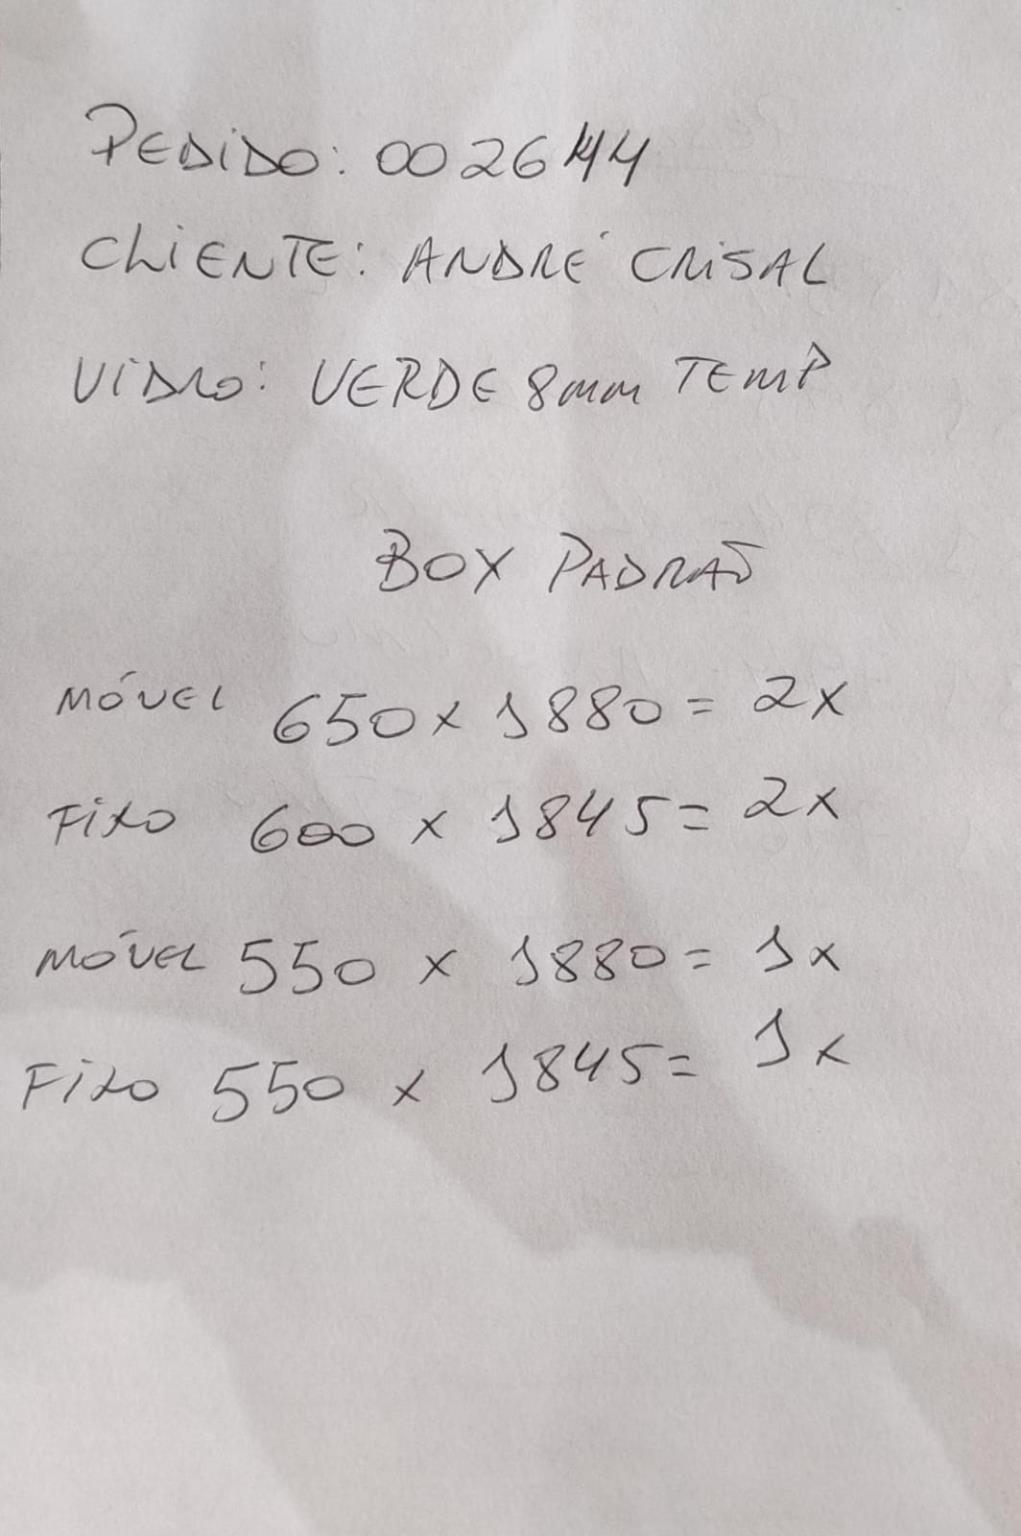 PEDIDO: 002644
CLIENTE: ANDRÉ CRISAL
VIDRO: VERDE 8mm TEMP
BOX PADRÃO
MÓVEL 650 x 1880 = 2x
FIXO 600 x 1845 = 2x
MÓVEL 550 x 1880 = 1x
FIXO 550 x 1845 = 1x